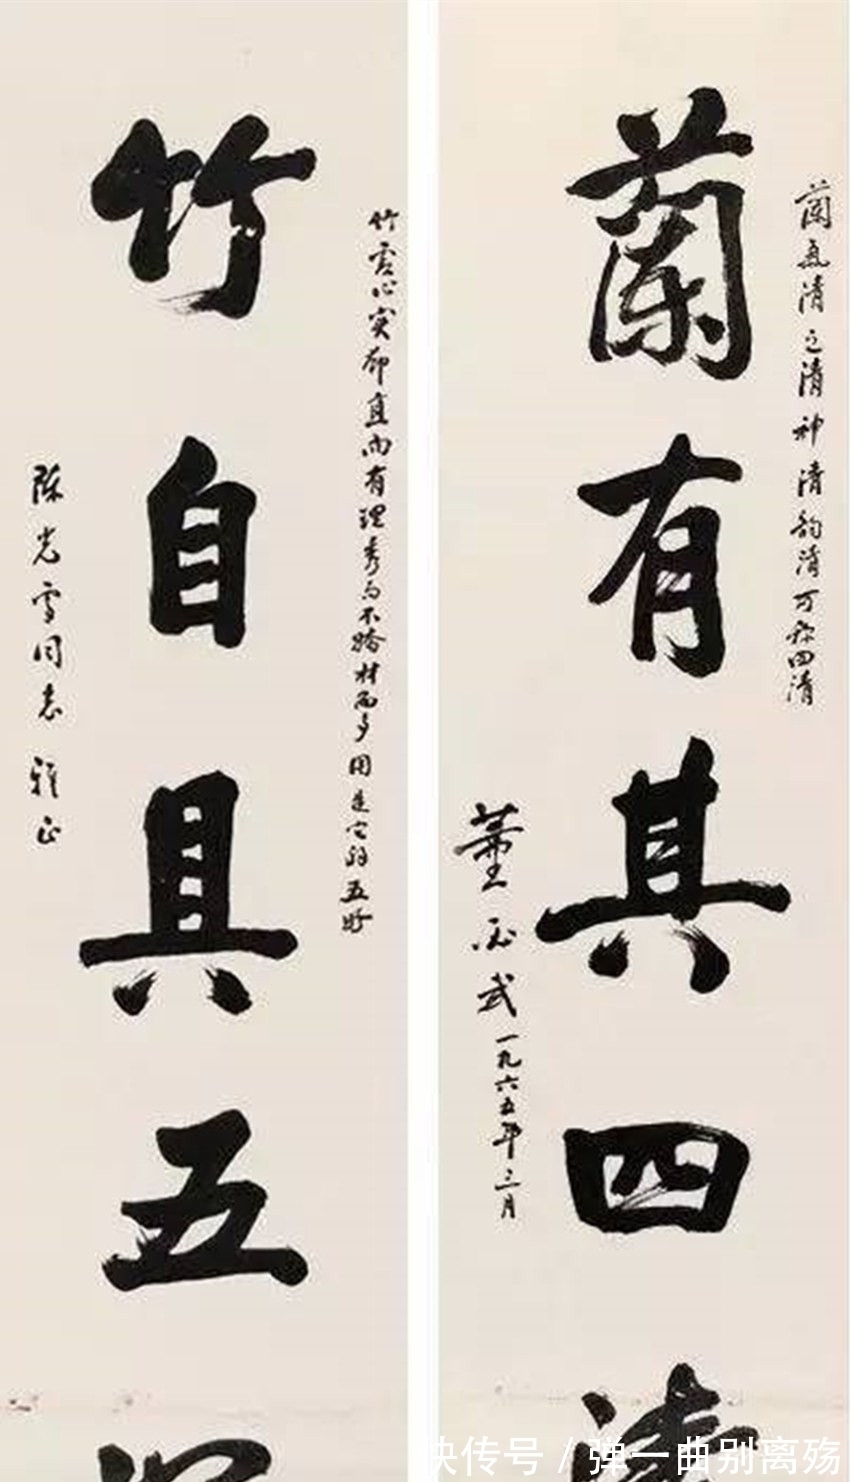 蘭氣清色清神清韵清可称四清
蘭有其四清
董必武一九六五年三月
竹虚心实節直而有理秀而不骄材而多用是它的五好
竹自具五
陈光雪同志雅正
快传号 / 弹一曲别离殇